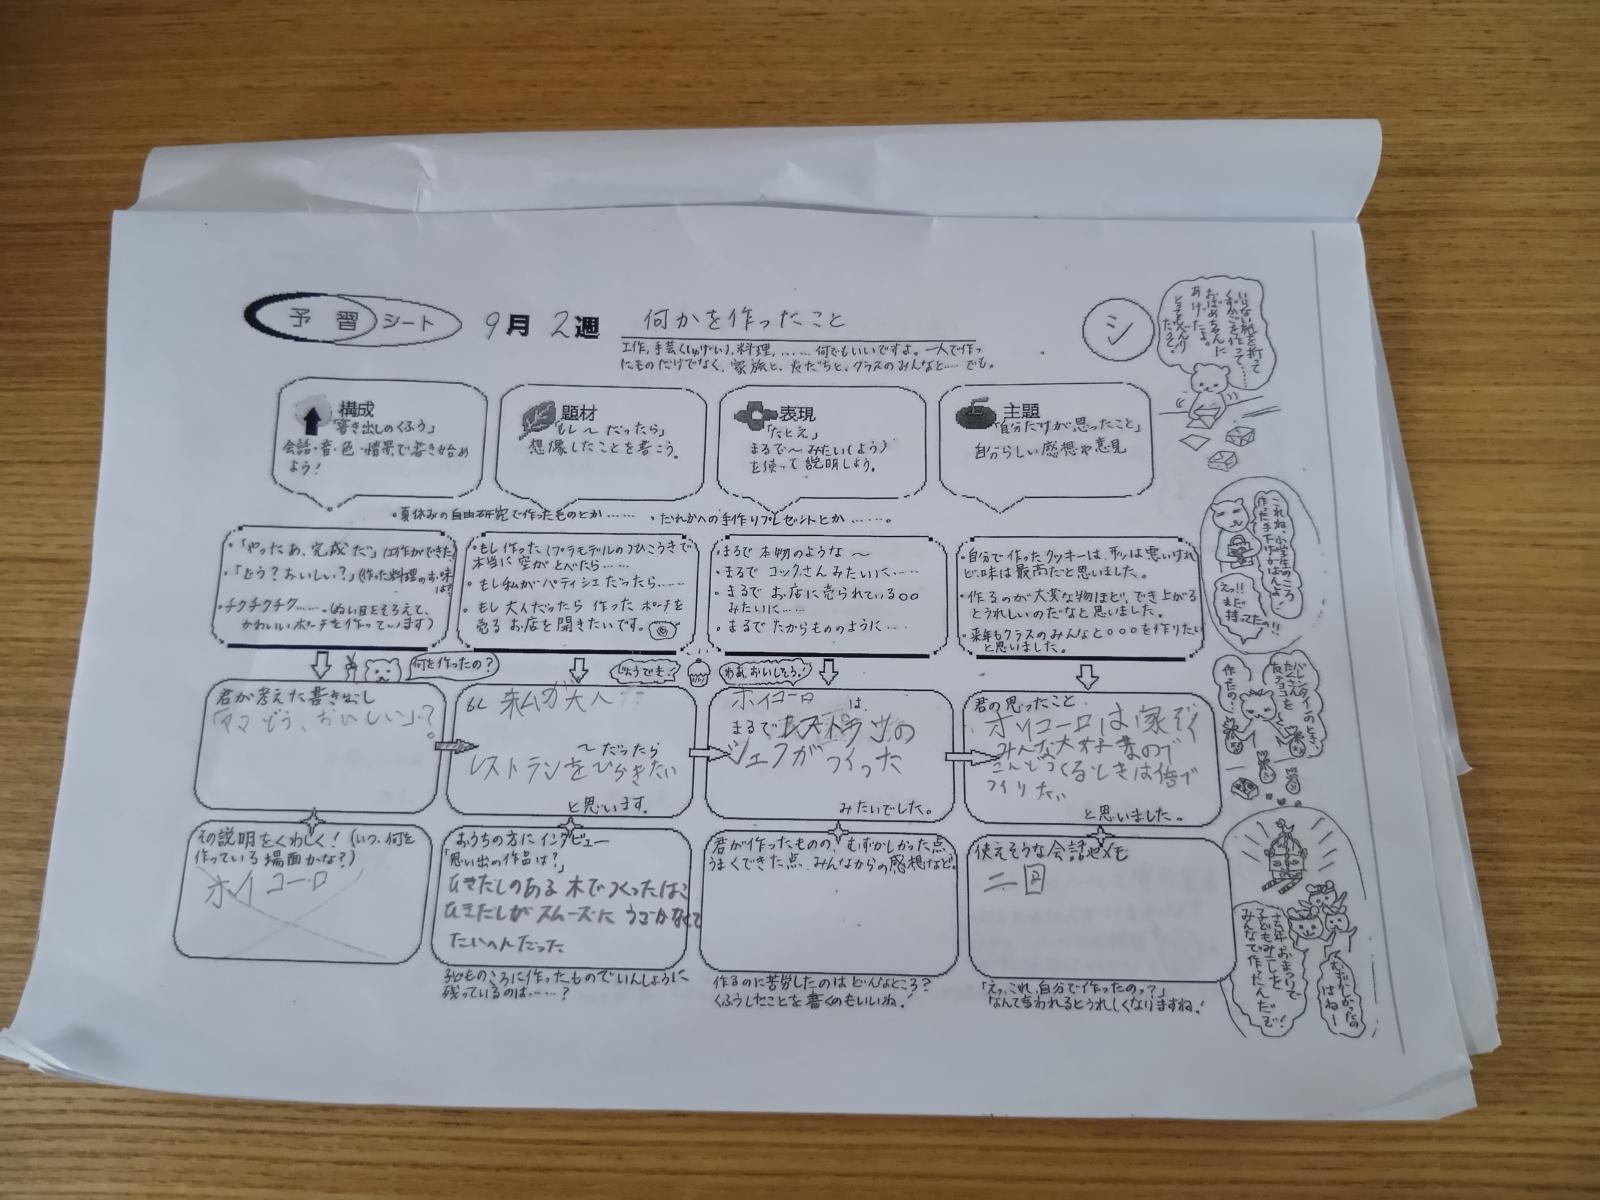 予習シート 9月 2週 何かを作ったこと
工作,手芸(しゅげい),料理,……何でもいいですよ。一人で作っ
たものだけでなく、家族と、友だちと、クラスのみんなと……でも。
シ
いらない紙を折って
くずかごを作って……
おばあちゃんに
あげたよ。
構成
「書き出しのくふう」
会話・音・色・情景で書き始め
よう!
題材
「もし〜だったら」
想像したことを書こう。
表現
「たとえ」
まるで〜みたい(よう)
を使って説明しよう。
主題
「自分だけが思ったこと」
自分らしい感想や意見
・夏休みの自由研究で作ったものとか……
・だれかへの手作りプレゼントとか……。
・「やったあ、完成だ」(工作ができた)
・「どう?おいしい?」(作った料理のお味は?)
・チクチクチク……。(ぬい目をそろえて、
かわいいポーチを作っています)
・もし作ったプラモデルのひこうきで
本当に空がとべたら……
・もし私がパティシエだったら……
・もし大人だったら作ったポーチを
売るお店を開きたいです。
・まるで本物のような〜
・まるでコックさんみたいに……
・まるでお店に売られている○○
みたいに……
・まるでたからもののように……
・自分で作ったクッキーは、形は悪いけれ
ど、味は最高だと思いました。
・作るのが大変な物ほど、でき上がる
とうれしいのだなと思いました。
・来年もクラスのみんなと○○○を作りたい
と思いました。
これね、小学生のころ
作った手さげかばんよ!
えっ!!
まだ
持ってたの!!
何を作ったの?
じょうでき!
わあ、おいしそう!
君が考えた書き出し
「ママどう、おいしい」?
もし 私が大人
〜だったら
レストランをひらきたい
と思います。
ホイコーロ
は、
まるでレストランの
シェフがつくった
みたいでした。
君の思ったこと
ホイコーロは家ぞく
みんな大好きなので
こんどつくるときは倍で
つくりたい
と思いました。
バレンタインのとき
たくさん
友チョコを
作ったの!
その説明をくわしく!(いつ、何を
作っている場面かな?)
ホイコーロ
おうちの方にインタビュー
「思い出の作品は?」
ひきだしのある木でつくったはこ
ひきだしがスムーズにうごかなくて
たいへんだった
子どものころに作ったものでいんしょうに
残っているのは……?
君が作ったものの、むずかしかった点
うまくできた点、みんなからの感想など。
作るのに苦労したのはどんなところ?
くふうしたことを書くのもいいね!
使えそうな会話やメモ
二回
「えっ、これ、自分で作ったのっ?」
なんて言われるとうれしくなりますね!
去年おまつりで
子どもみこしを
みんなで作ったんだぞ!
むずかしかったの
はねー